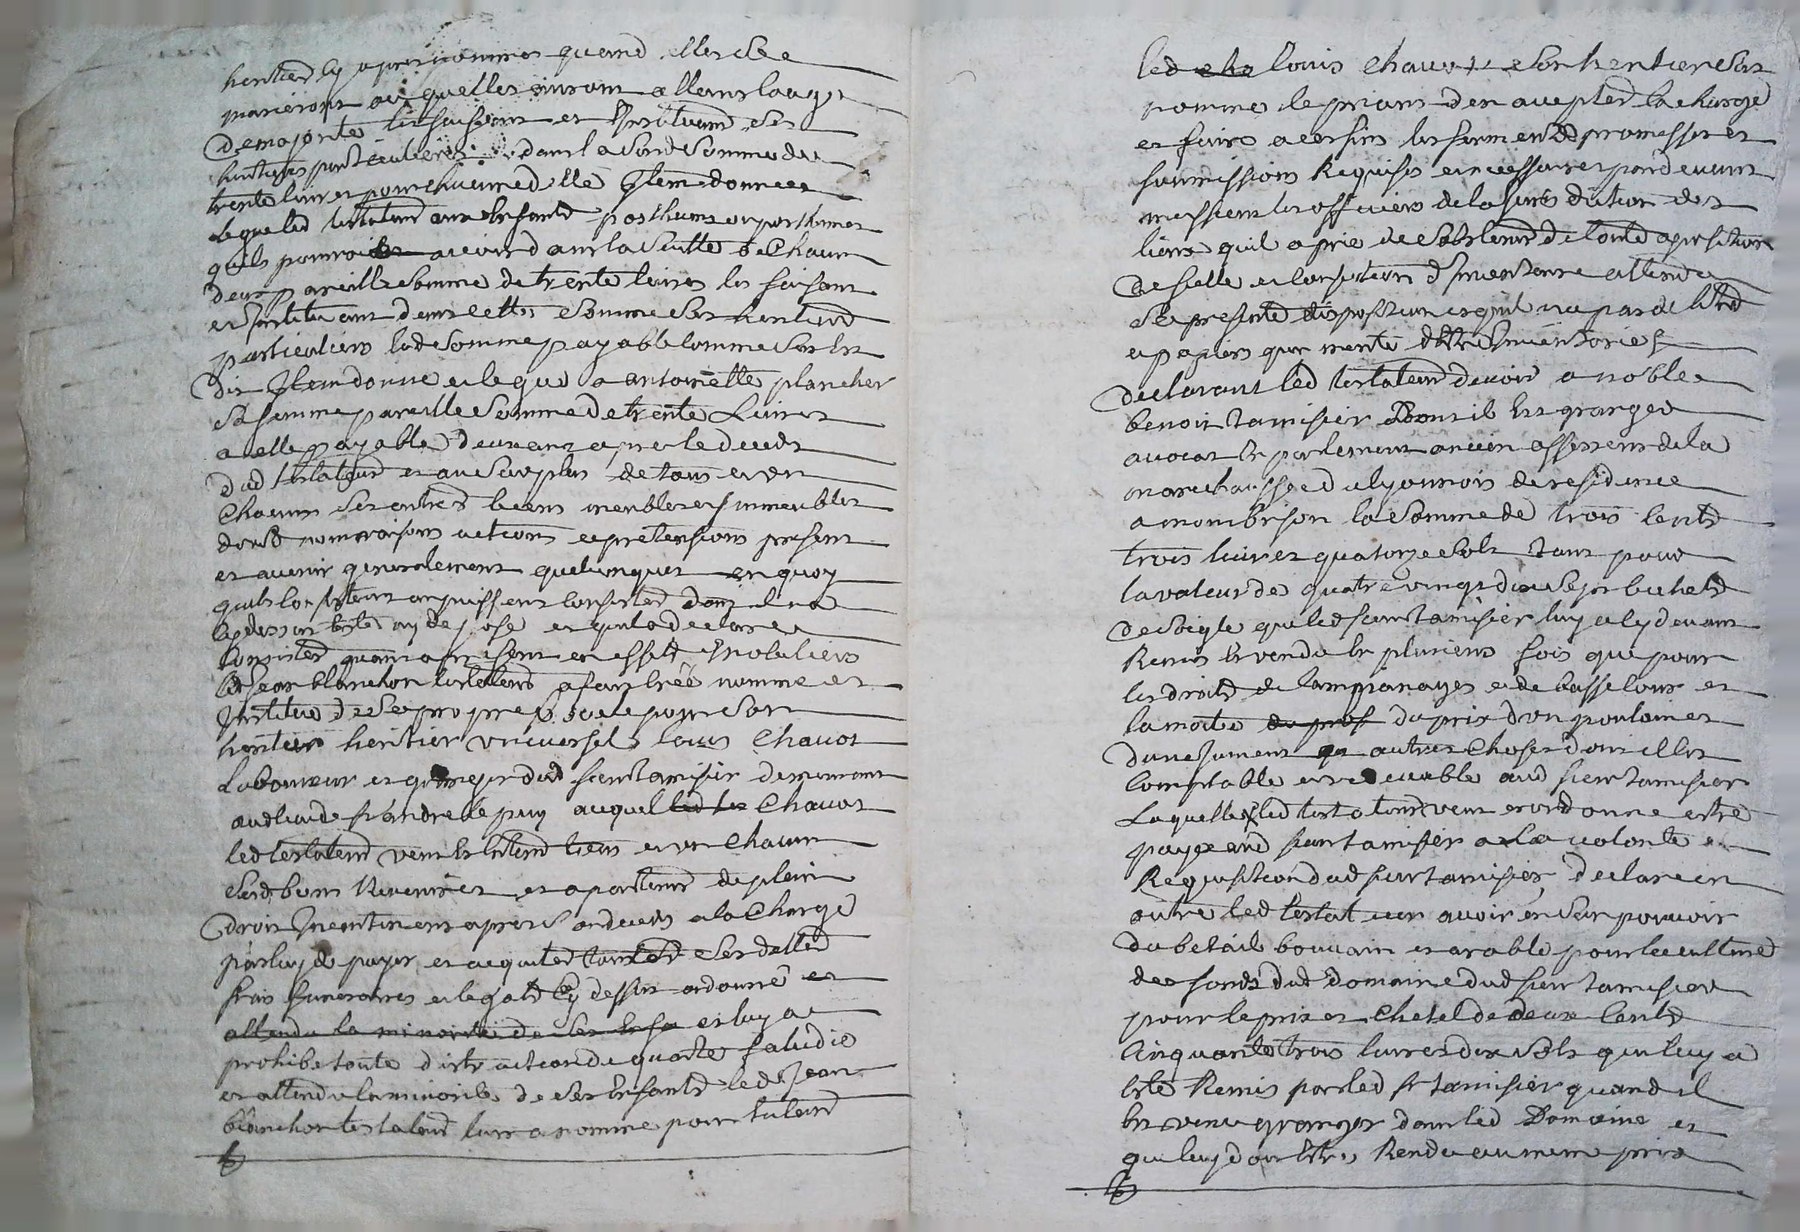 heritier cy apres nommer quand elles se
marieront ou quelles auront atteins laage
de majorité les faisant et Instituant ses
heritieres particulieres dans lad somme de
trente livres pour chacune delle Item donne et
legue led testateur aux Enfants posthumes ou posthumes
quils pourroit avoir dans la suitte a chacun
deux pareille somme de trente livres les faisant
et Instituant dans cette somme ses heritiers
particuliers lad somme payable comme sus est
dit Item donne et legue a antoinette plancher
sa femme pareille somme de trente Livres
a elle payable deux ans apres le deceds
dud testateur et au surplus de tous et un
chacuns ses autres biens meubles et immeubles
droits noms raisons actions et pretensions present
et avenir generalement quelconques en quoy
quils consistent ou puissent consister dont il na
cy dessus testé ny disposé et quil a declaré
consister quant a present en effets mobiliers
led Jean blanchon testateur a fait créé nommé et
Institué de sa propre bouche pour son
heritier heritier universel louis chavot
Laboureur et granger dud sieur tamisier demeurant
aud lieu de st andre le puy auquel led les chavot
led testateur veut et entend tous et un chacun
sesd biens revenir et apartenir de plein
droit Incontinent apres son deceds a la charge
par luy de payer et acquiter toutes ses dettes
frais funeraires et legats cy dessus ordonné et
attendu la minorité de ses enfa et luy a
prohibé toute distraction de quarte falcidie
et attendu la minorité de ses Enfants led Jean
blanchon testateur leur a nommé pour tuteur
led cha louis chavot son heritier sus
nommé le priant den accepter la charge
et faire a ces fins les serments promesses et
soumissions Requises et necessaires pardevant
messieurs les officiers de la jurisdiction des
lieux quil a prié de sabstenir de toute aposition
de scellé et confection dInventaire attendu
sa presente disposition et quil na pas de titres
et papiers qui merite detre Inventoriés
declarant led testateur devoir a noble
benoit tamisier dont il est granger
avocat En parlement ancien assesseur de la
marechaussée du lyonnois de residence
a montbrison la somme de trois cents
trois livres quatorze sols tant pour
la valeur de quatre vingt dix sept bichets
de seigle que led sieur tamisier luy a cy devant
Remis et vendu En plusieurs fois que pour
les droits de lampanages et de basse cour et
la moitié du prof du prix dun poulain et
dune jument et autres choses dont il est
comptable et redevable aud sieur tamisier
Laquelle led testateur veut et ordonne estre
payée aud sieur tamisier a La volonté et
Requisition dud sieur tamisier, declare en
outre led testateur avoir en son pouvoir
du betail bouvain et arable pour la culture
des fonds dud domaine dud sieur tamisier
pour le prix et chetel de deux cents
cinquante trois livres dix sols qui luy a
Eté Remis par led sr tamisier quand il
Est venu granger dans led Domaine et
qui luy doit Etre Rendu au meme prix